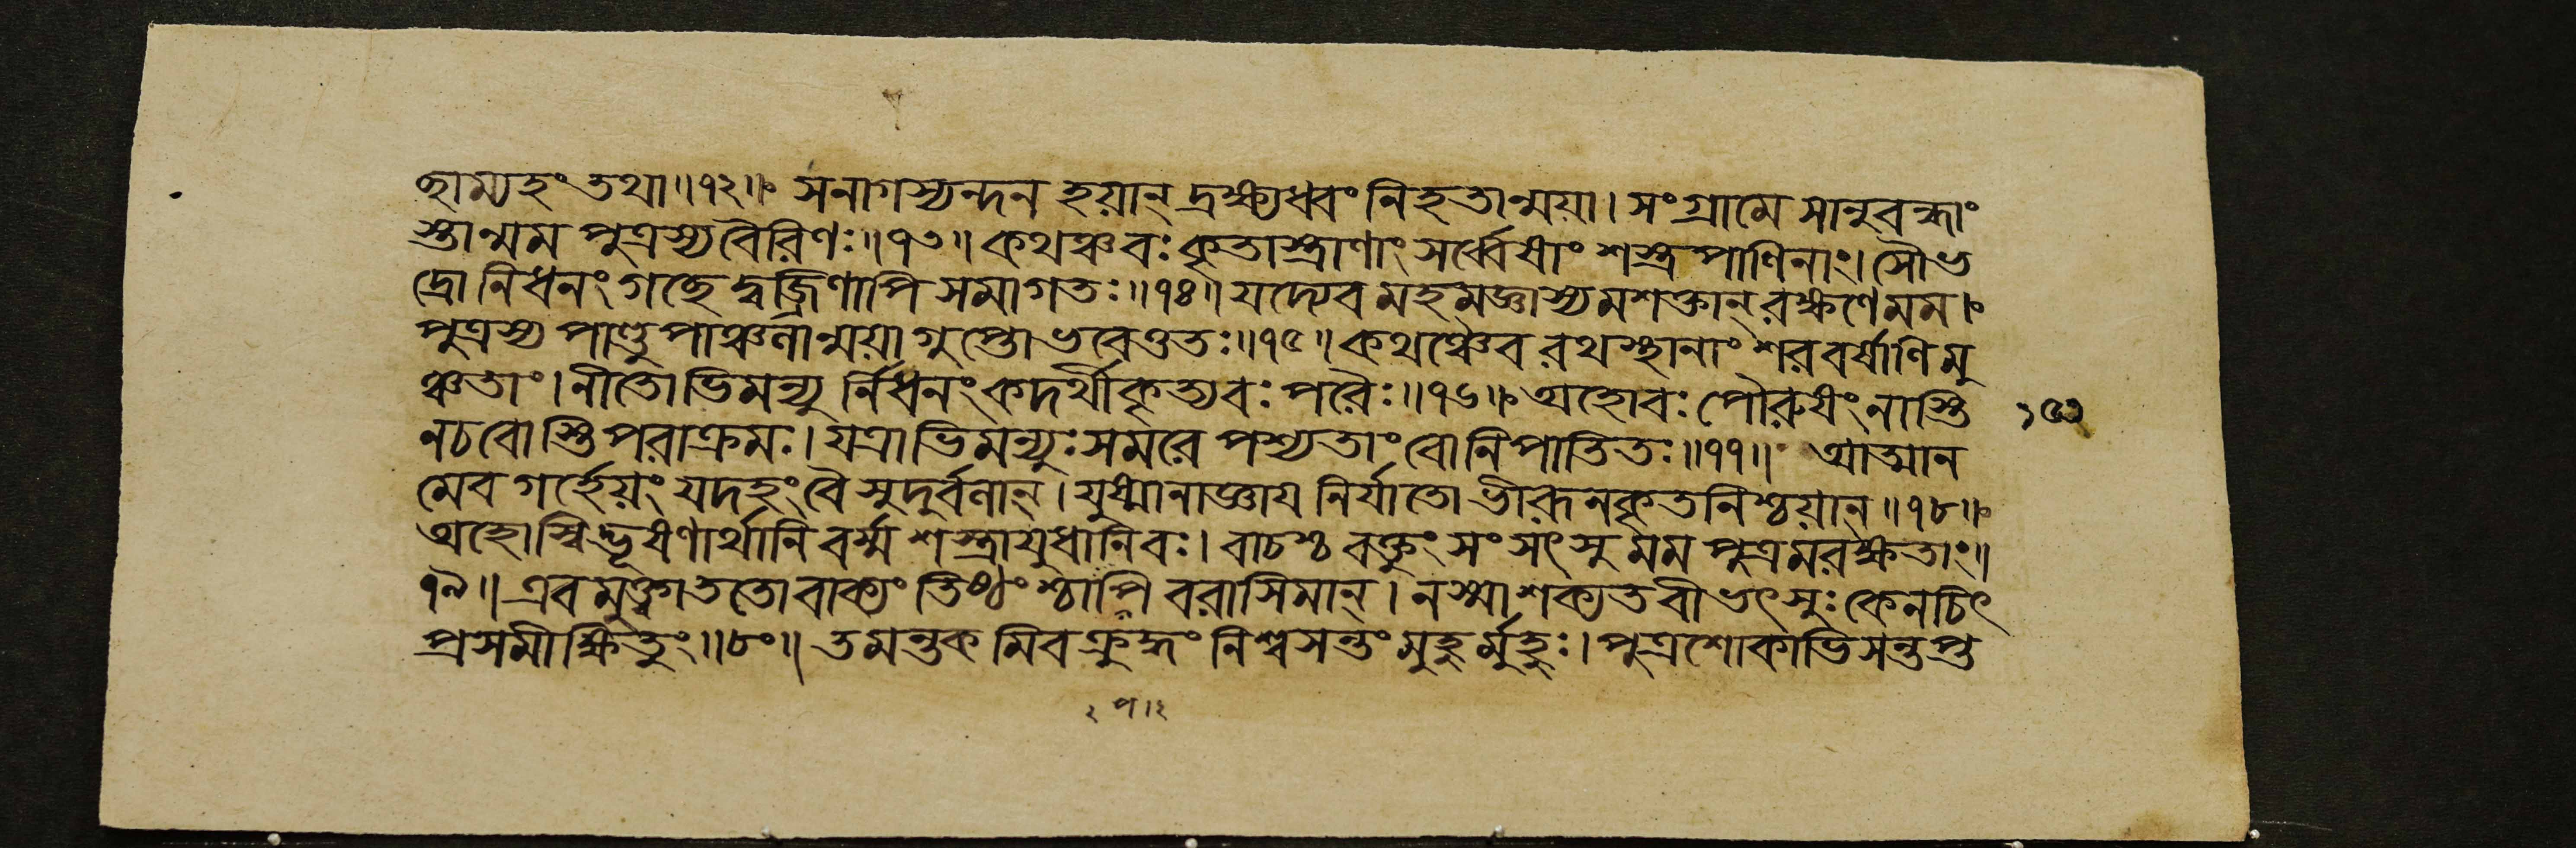 ছাম্যহং তথা॥৭২॥ সনাগস্যন্দন হয়ান্ দ্রক্ষ্যধ্বং নিহতান্ময়া। সংগ্রামে সানুবন্ধাং
স্তান্মম পুত্রস্য বৈরিণঃ॥৭৩॥ কথঞ্চ বঃ কৃতাস্ত্রাণাং সর্ব্বেষাং শস্ত্রপাণিনাং। সৌভ
দ্রো নিধনং গচ্ছে দ্বজ্রিণাপি সমাগতঃ॥৭৪॥ যদ্যেব মহমজ্ঞাস্যমশক্তান্ রক্ষণে মম।
পুত্রস্য পাণ্ডু পাঞ্চলান্ময়া গুপ্তো ভবেত্ততঃ॥৭৫॥ কথঞ্চৈব রথস্থানাং শরবর্ষাণি মু
ঞ্চতাং। নীতোভিমন্যু র্নিধনং কদর্থীকৃত্য বঃ পরৈঃ॥৭৬॥ অহোবঃ পৌরুষং নাস্তি
১৫১
নচ বোস্তি পরাক্রমঃ। যত্রাভিমন্যুঃ সমরে পশ্যতাং বো নিপাতিতঃ॥৭৭॥ আত্মান
মেব গর্হেয়ং যদহং বৈ সুদুর্বলান্। যুষ্মানাজ্ঞায নির্যাতো ভীরূনকৃতনিশ্চয়ান্॥৭৮॥
অহোস্বিদ্ভূষণার্থানি বর্ম্ম শস্ত্রাযুধানি বঃ। বাচশ্চ বক্তুং সংসৎসু মম পুত্রমরক্ষতাং॥
৭৯॥ এবমুক্ত্বা ততো বাক্যং তিষ্ঠংশ্চাপি বরাসিমান্। নস্মাশক্যত বীভৎসুঃ কেনচিৎ
প্রসমীক্ষিতুং॥৮০॥ তমন্তকমিব ক্রুদ্ধং নিশ্বসন্তং মুহুর্মুহুঃ। পুত্রশোকাভিসন্তপ্ত